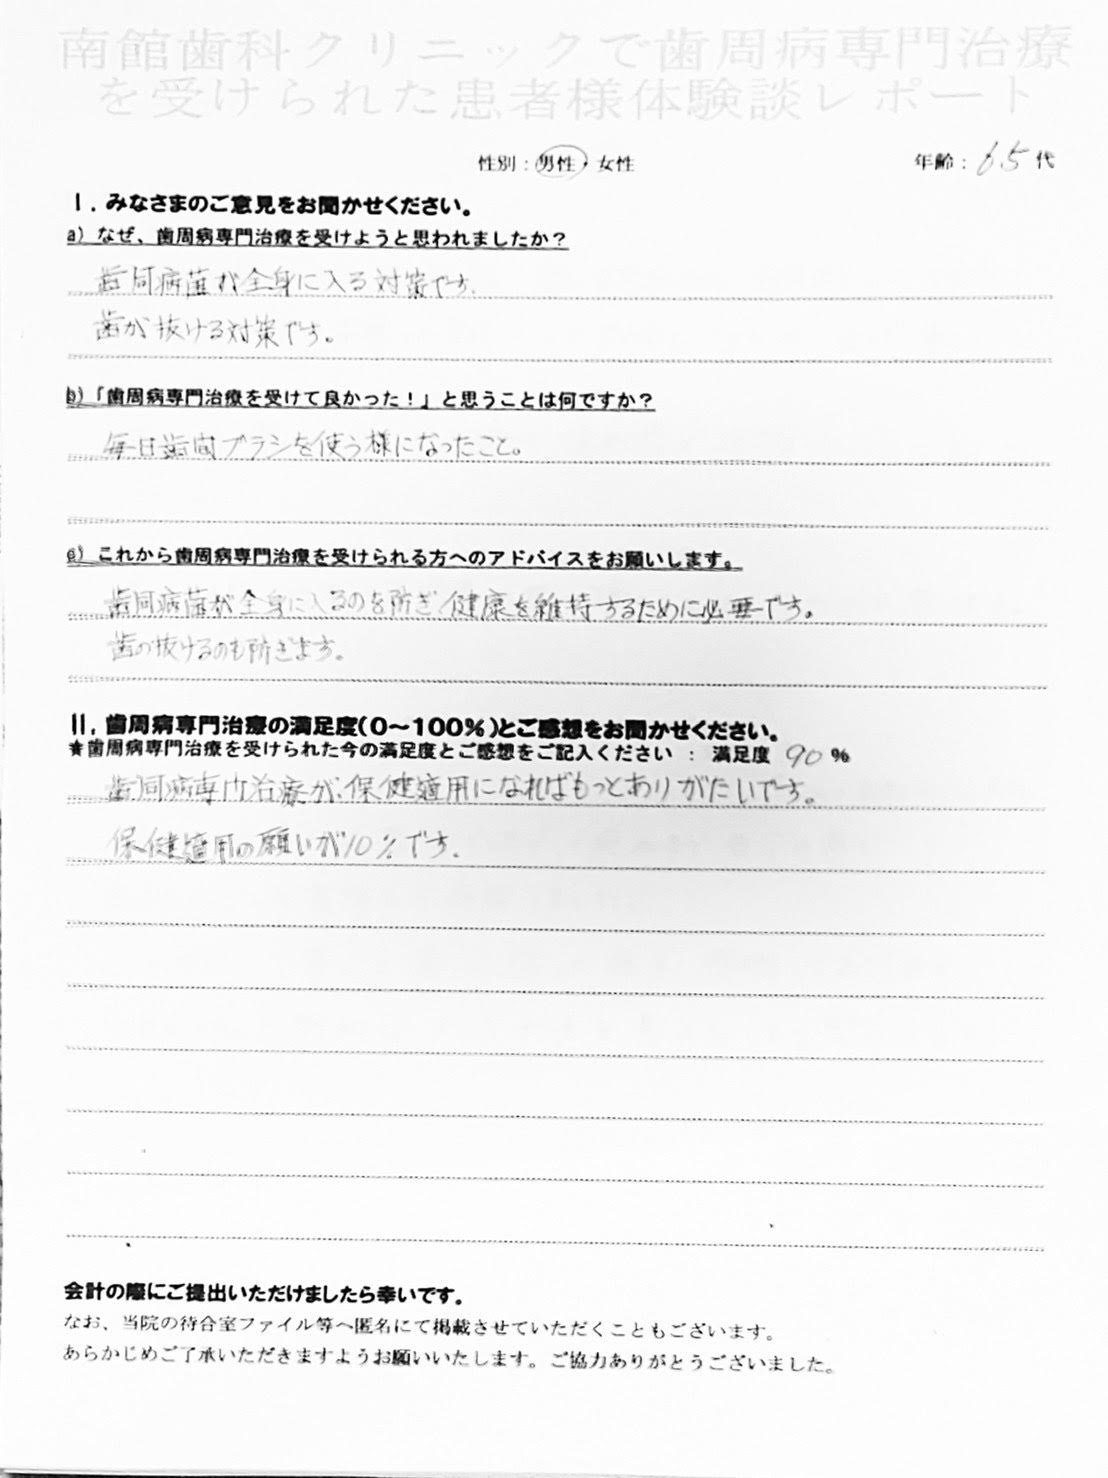 南館歯科クリニックで歯周病専門治療
を受けられた患者様体験談レポート
性別：男性・女性 年齢：65代
Ⅰ．みなさまのご意見をお聞かせください。
a）なぜ、歯周病専門治療を受けようと思われましたか？
歯周病菌が全身に入る対策です。
歯が抜ける対策です。
b）「歯周病専門治療を受けて良かった！」と思うことは何ですか？
毎日歯間ブラシを使う様になったこと。
c）これから歯周病専門治療を受けられる方へのアドバイスをお願いします。
歯周病菌が全身に入るのを防ぎ健康を維持するために必要です。
歯の抜けるのも防ぎます。
Ⅱ．歯周病専門治療の満足度（0～100％）とご感想をお聞かせください。
★歯周病専門治療を受けられた今の満足度とご感想をご記入ください ： 満足度 90 ％
歯周病専門治療が、保健適用になればもっとありがたいです。
保健適用の願いが10％です。
会計の際にご提出いただけましたら幸いです。
なお、当院の待合室ファイル等へ匿名にて掲載させていただくこともございます。
あらかじめご了承いただきますようお願いいたします。ご協力ありがとうございました。